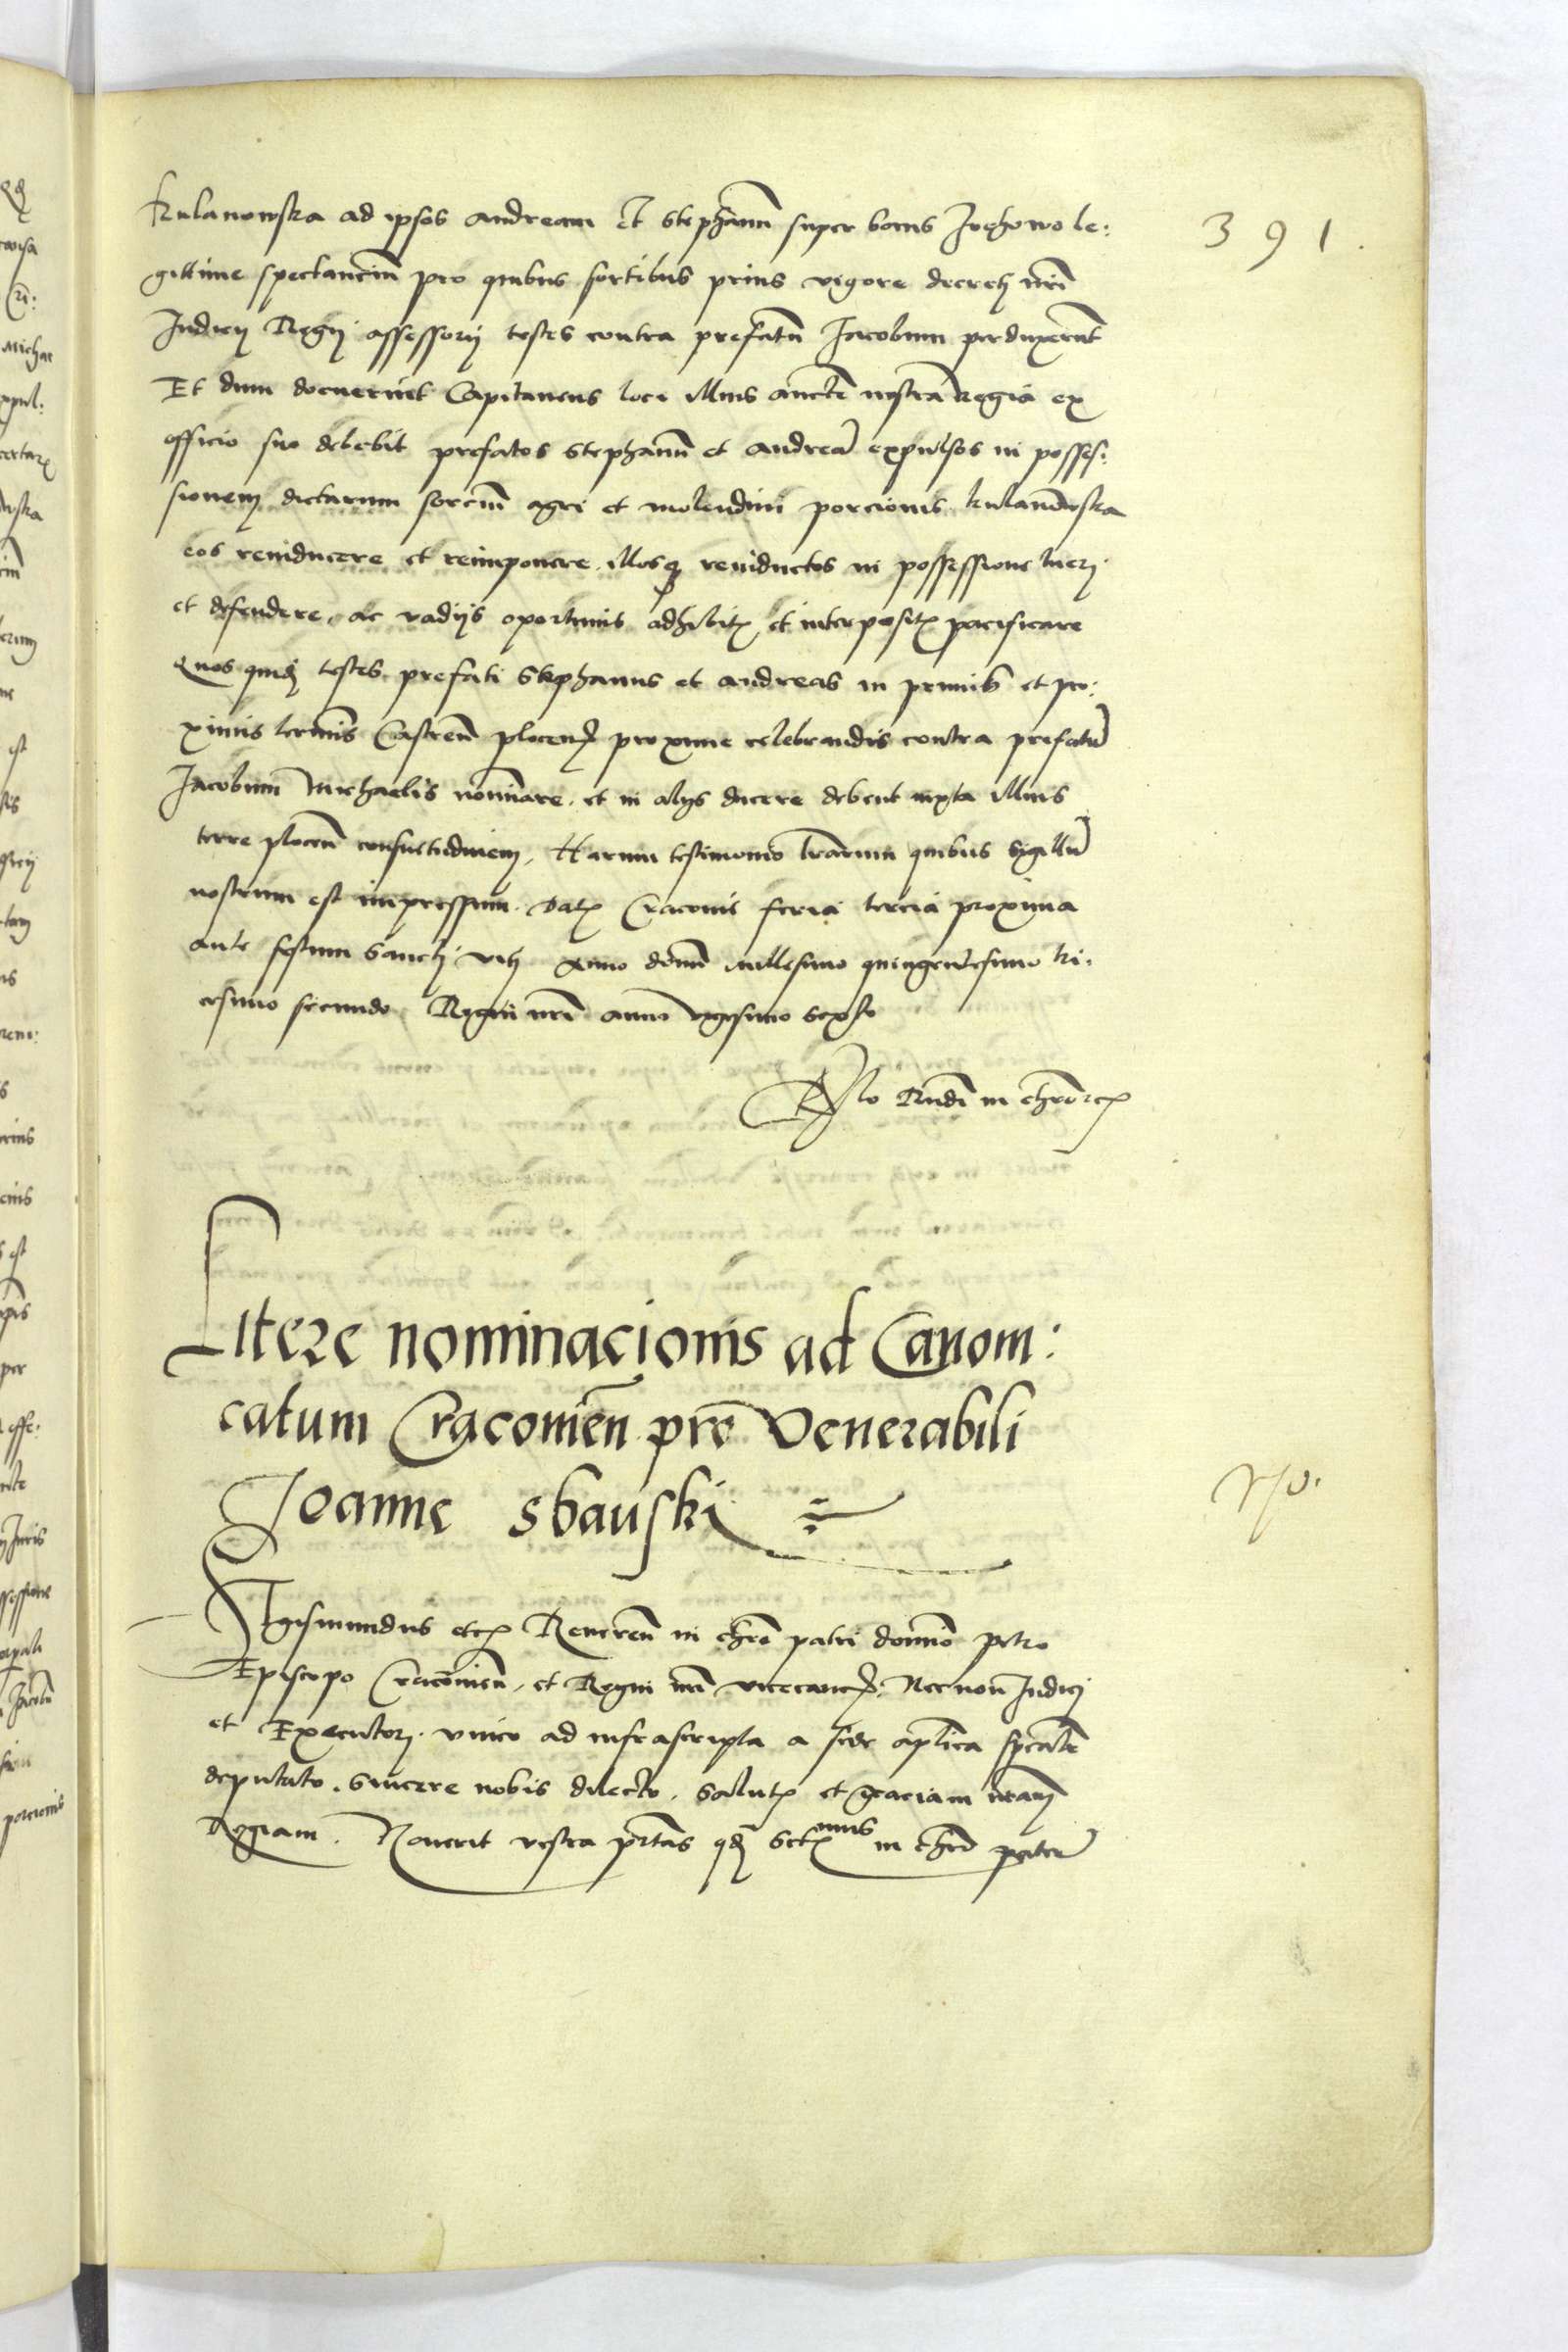 391.
Kulanowska ad ipsos Andream et Stephanũ super bonis Irzhowo le:
gittime spectanciũ pro quibus sortibus prius vigore decretj nr̃i
Judicij Regij assessorij testes contra prefatũ Jacobum perduxerũt
Et dum docuerint Capitaneus loci illius aucte nostra Regia ex
officio suo debebit prefatos Stephanũ et Andreã expulsos in posses:
sionem dictarum sorciũ agri et molendini porcionis Kulanowska
eos reinducere et reimponere illosq reinductos in possessione tueri
et defendere, ac vadijs oportunis adhibitis et interpositis pacificare
Quos quidem testes prefati Stephanus et Andreas in primis et pro:
ximis terminis Castreñ plocens proxime celebrandis contra prefatũ
Jacobum Michaelis nominare et in alijs ducere debent iuxta illius
terre ploceñ consuetudinem, Harum testimonio lrarum quibus Sigillũ
nostrum est impressum. Datum Cracovie feria tercia proxima
ante festum Sancti Viti Anno domini millesimo quingentesimo tri:
cesimo secundo Regni nr̃i anno vigesimo sexto
Rudi in
Littere nominacionis ad Canoni:
catum Cracovieñ pro Venerabili
Joanne Sbanski
Sigismundus etc Revereñ in chro patri domino Petro
Episcopo Cracovieñ, et Regni nr̃i vicecancell, Necnon Judici
et Executori unico ad infrascripta a sede aplica specialr
deputato, Sincere nobis dilecto, Salutem et graciam nr̃am
Regiam. Noverit vestra ptas qd Sctissimus in chro pater